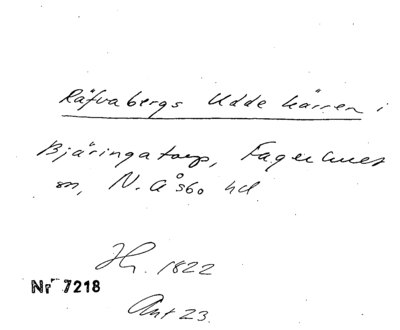 Räfvabergs Udde kärren i
Bjäringatorp, Fagerhults
sn, N. Åsbo hd.
Hr. 1822
Nr 7218
Ant 23.